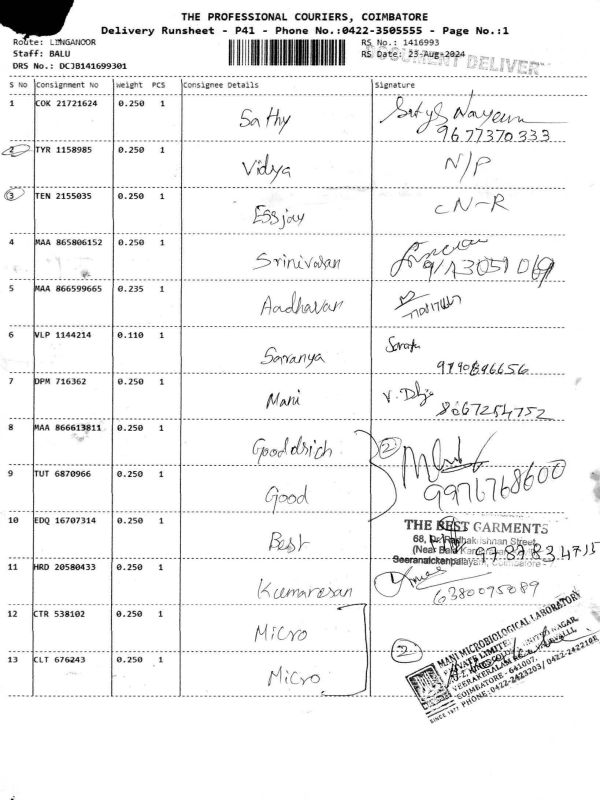 THE PROFESSIONAL COURIERS, COIMBATORE
Delivery Runsheet - P41 - Phone No.:0422-3505555 - Page No.:1
Route: LINGANOOR RS No.: 1416993
Staff: BALU RS Date: 23-Aug-2024
DRS No.: DCJB141699301 DOCUMENT DELIVER
S No Consignment No weight PCS Consignee Details Signature
1 COK 21721624 0.250 1 Sathy
9677370333
2 TYR 1158985 0.250 1 Vidya N/P
3 TEN 2155035 0.250 1 Essjay CN-R
4 MAA 865806152 0.250 1 Srinivasan
5 MAA 866599665 0.235 1 Aadhavan
6 VLP 1144214 0.110 1 Saranya
9790846656
7 DPM 716362 0.250 1 Mani
8667254752
8 MAA 866613811 0.250 1 Gooddrich 2
9976768600
9 TUT 6870966 0.250 1 Good
10 EDQ 16707314 0.250 1 Best THE BEST GARMENTS
68, Dr. Radhakrishnan Street,
(Near Bala
Seeranaickenpalayam, Coimbatore -
11 HRD 20580433 0.250 1 Kumaresan
6380075089
12 CTR 538102 0.250 1 Micro
13 CLT 676243 0.250 1 Micro 2
MANI MICROBIOLOGICAL LABORATORY
PRIVATE LIMITED
VEERAKERALAM
COIMBATORE - 641007.
PHONE: 0422-2423203 / 0422-2422108
SINCE 1977